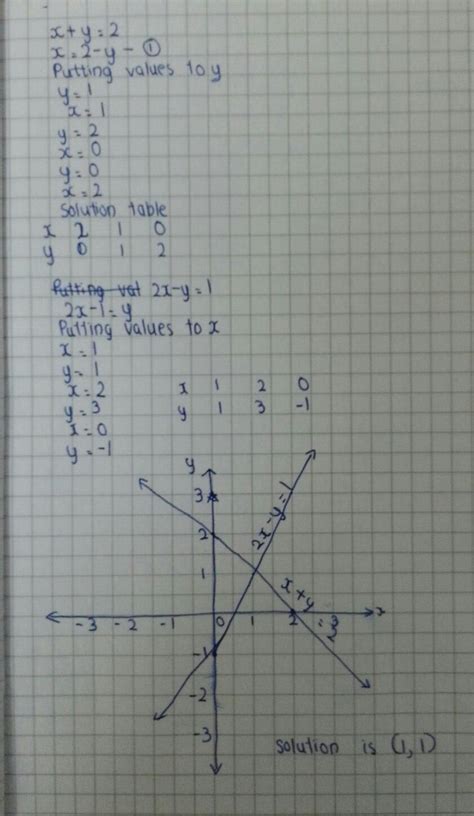 x+y=2
x=2-y - ①
Putting values to y
y=1
x=1
y=2
x=0
y=0
x=2
Solution table
x 2 1 0
y 0 1 2
Putting vat 2x-y=1
2x-1=y
Putting values to x
x=1
y=1
x=2
y=3
x=0
y=-1
x 1 2 0
y 1 3 -1
y
3
2
1
2x-y=1
x+y=2
-3 -2 -1 0 1 2 3 x
-1
-2
-3
Solution is (1,1)